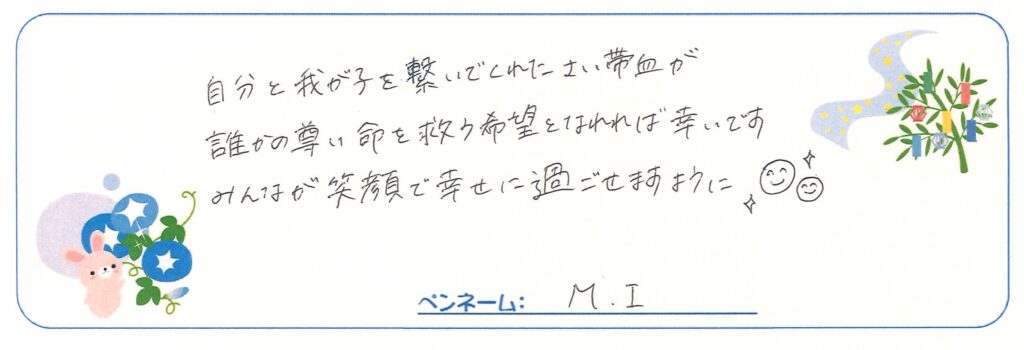 自分と我が子を繋いでくれたさい帯血が
誰かの尊い命を救う希望となれれば幸いです
みんなが笑顔で幸せに過ごせますように
ペンネーム： M.I